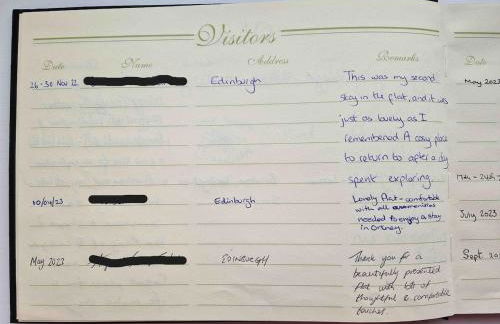 Visitors
Date Name Address Remarks
26-30 Nov 22 Edinburgh This was my second
stay in the flat, and it was
just as lovely as I
remembered. A cosy place
to return to after a day
spent exploring.
10/04/23 Edinburgh Lovely flat - comfortable
with all amenities
needed to enjoy a stay
in Orkney.
May 2023 EDINBURGH Thank you for a
beautifully presented
flat with lots of
thoughtful & comfortable
touches.
Date
May 2023
17th - 24th
July 2023
Sept 20